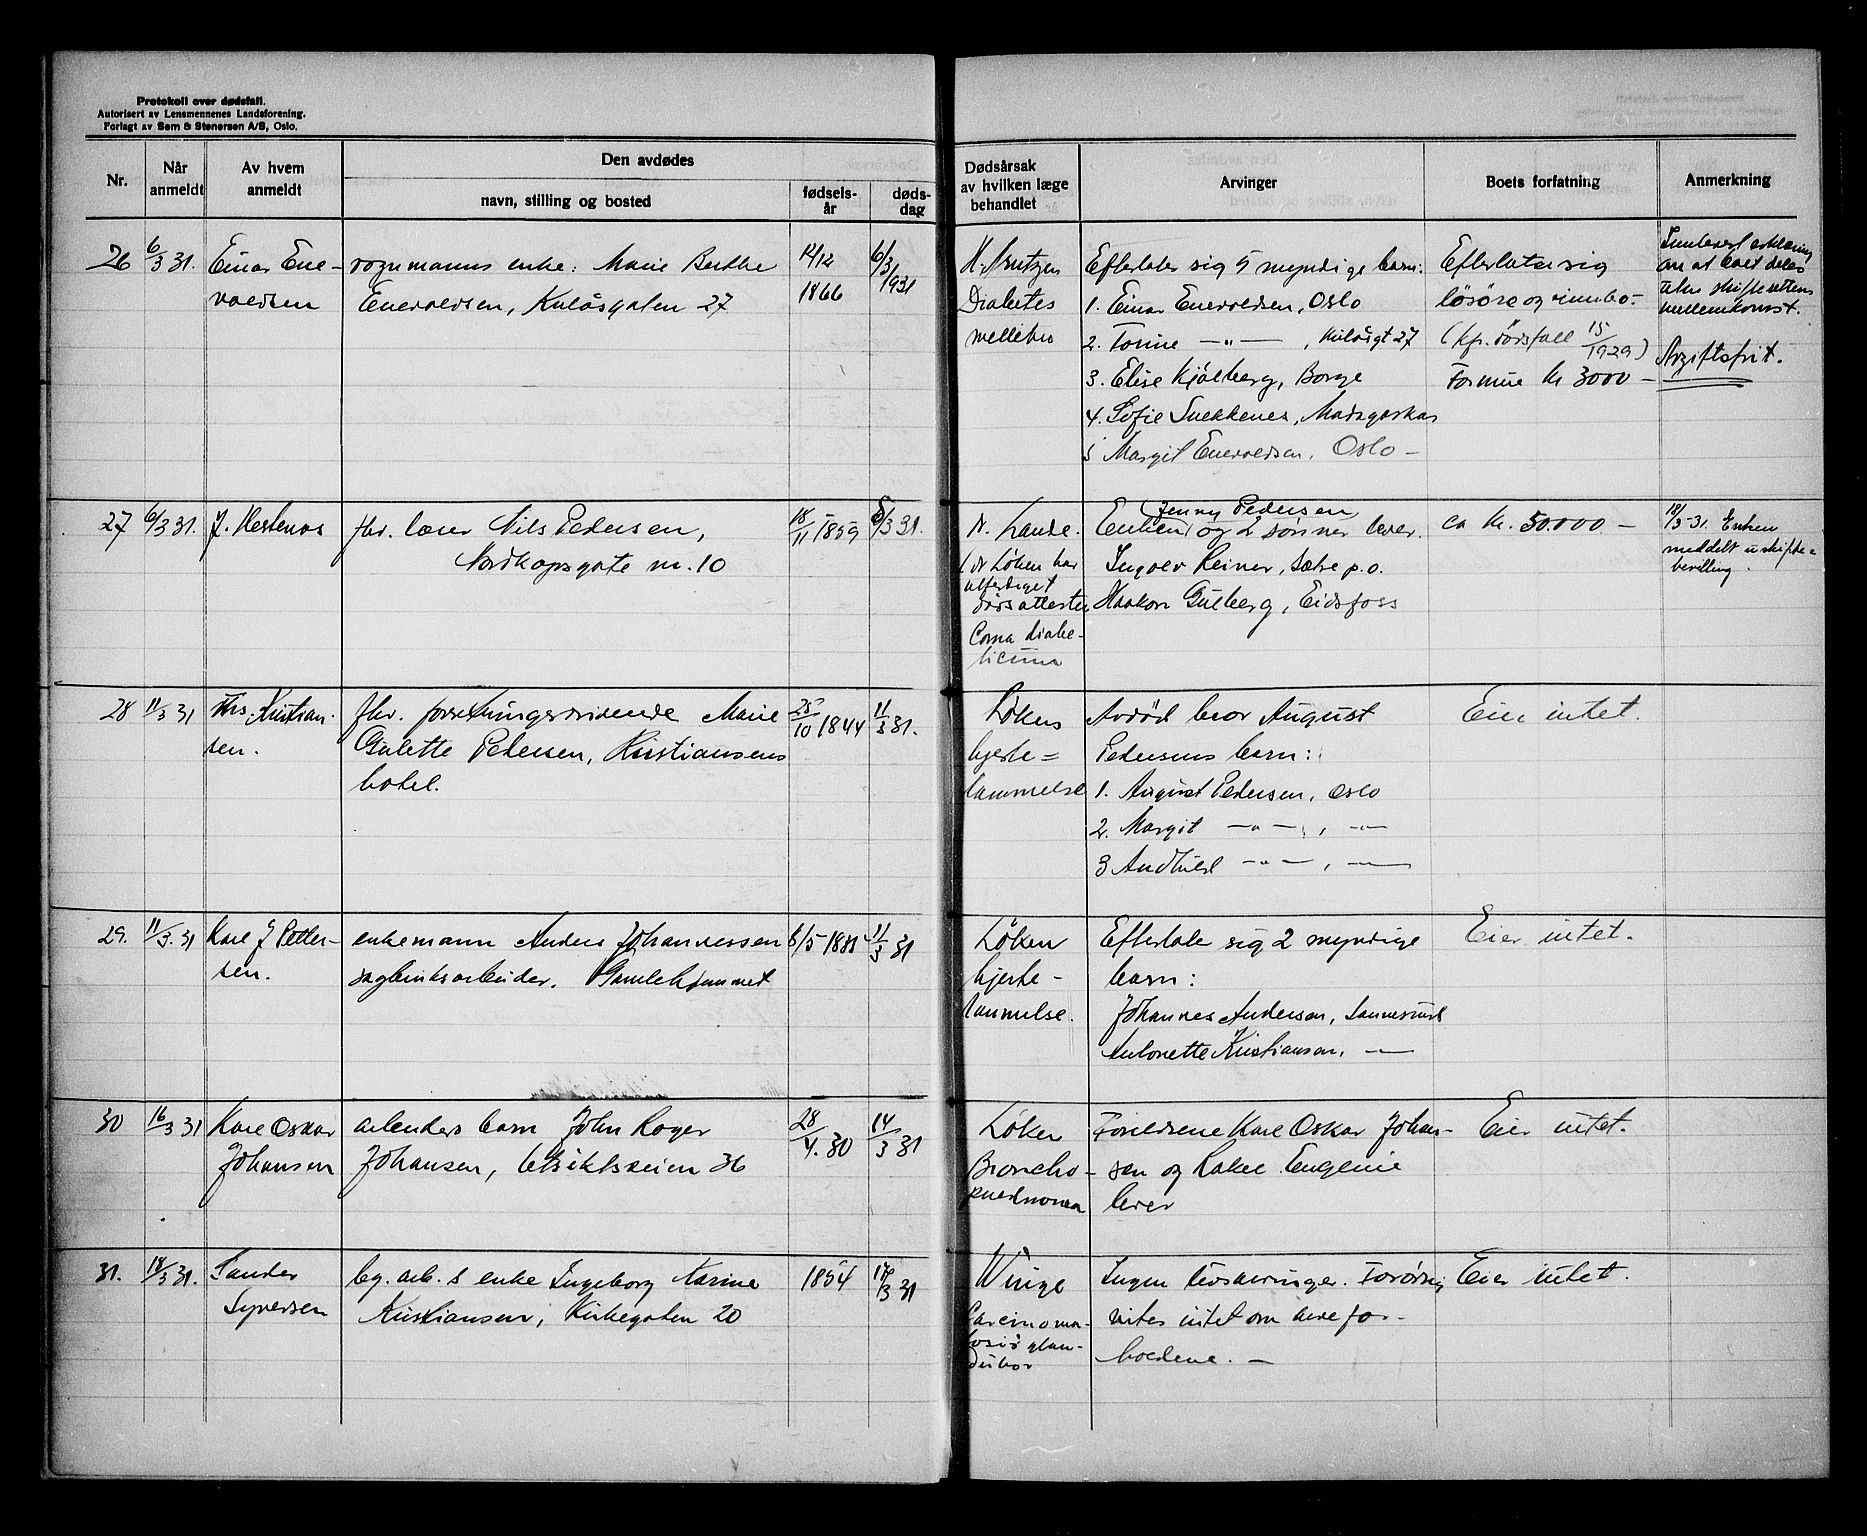 Protokoll over dødsfall.
Autorisert av Lensmennenes Landsforening.
Forlagt av Sem & Stenersen A/S, Oslo.
Nr.
Når anmeldt
Av hvem anmeldt
Den avdødes
navn, stilling og bosted
fødsels-år
døds-dag
Dødsårsak
av hvilken læge
behandlet
Arvinger
Boets forfatning
Anmerkning
26 6/3 31. Einar Ene-
voldsen
vognmanns enke: Marie Berthe
Enevoldsen, Kulåsgaten 27
12/12
1866
6/3
1931
Diabetes
mellitus
Efterlater sig 5 myndige barn:
1. Einar Enevoldsen, Oslo
2. Torine —„— , Kulåsgt 27
3. Elise Kjölberg, Borge
4. Sofie Snekkenes, Madagaskar
5 Margit Enevoldsen, Oslo —
Efterlater sig
lösöre og innbo —
(Kfr. dödsfall 15/1929)
Formue kr 3000 —
Innlevert erklæring
om at boet deles
uten skifterettens
mellemkomst.
Avgiftsfrit.
27 6/3 31. J. Hestenes
fhv. lærer Nils Pedersen,
Nordkapsgate nr. 10
18/11 1859
6/3 31.
N. Lande.
(Dr Löken har
utferdiget
dödsattesten
Coma diabe-
ticum
Jenny Pedersen
Enken og 2 sönner lever.
Ingolv Reiner, Sætre p.o.
Haakon Gulberg, Eidsfoss
ca kr. 50.000. —
18/3-31. Enken
meddelt uskifte=
bevilling.
28 11/3 31 Ths. Kristian-
sen.
fhv. forretningsdrivende Marie
Gulette Pedersen, Kristiansens
hotel.
25/10 1844
11/3 31.
Löken
hjerte=
lammelse
Avdöd bror August
Pedersens barn:
1. August Pedersen, Oslo
2. Margit —„— , —„—
3 Andhild —„— , —„—
Eier intet.
29. 11/3. 31 Karl J Petter-
sen.
enkemann Anders Johannessen
sagbruksarbeider. Gamlehjemmet
11/3 31
Löken
hjerte-
lammelse.
Efterlater sig 2 myndige
barn:
Johannes Andersen, Sannesund
Antonette Kristiansen, —„—
Eier intet.
30 16/3 31 Karl Oskar
Johansen
arbeiders barn John Roger
Johansen, Utsiktsveien 36
28/4. 30
14/3 31
Löken
Broncho-
pneumonia
Foreldrene Karl Oskar Johan-
sen og Rakel Eugenie
lever
Eier intet.
31. 18/3 31. Sander
Syversen
bg. arb. s enke Ingeborg Karine
Kristiansen, Kirkegaten 20
1854
17/3 31
Winge
Carcinoma-
Ingen livsarvinger.
vites intet om
holdene. —
Eier intet.